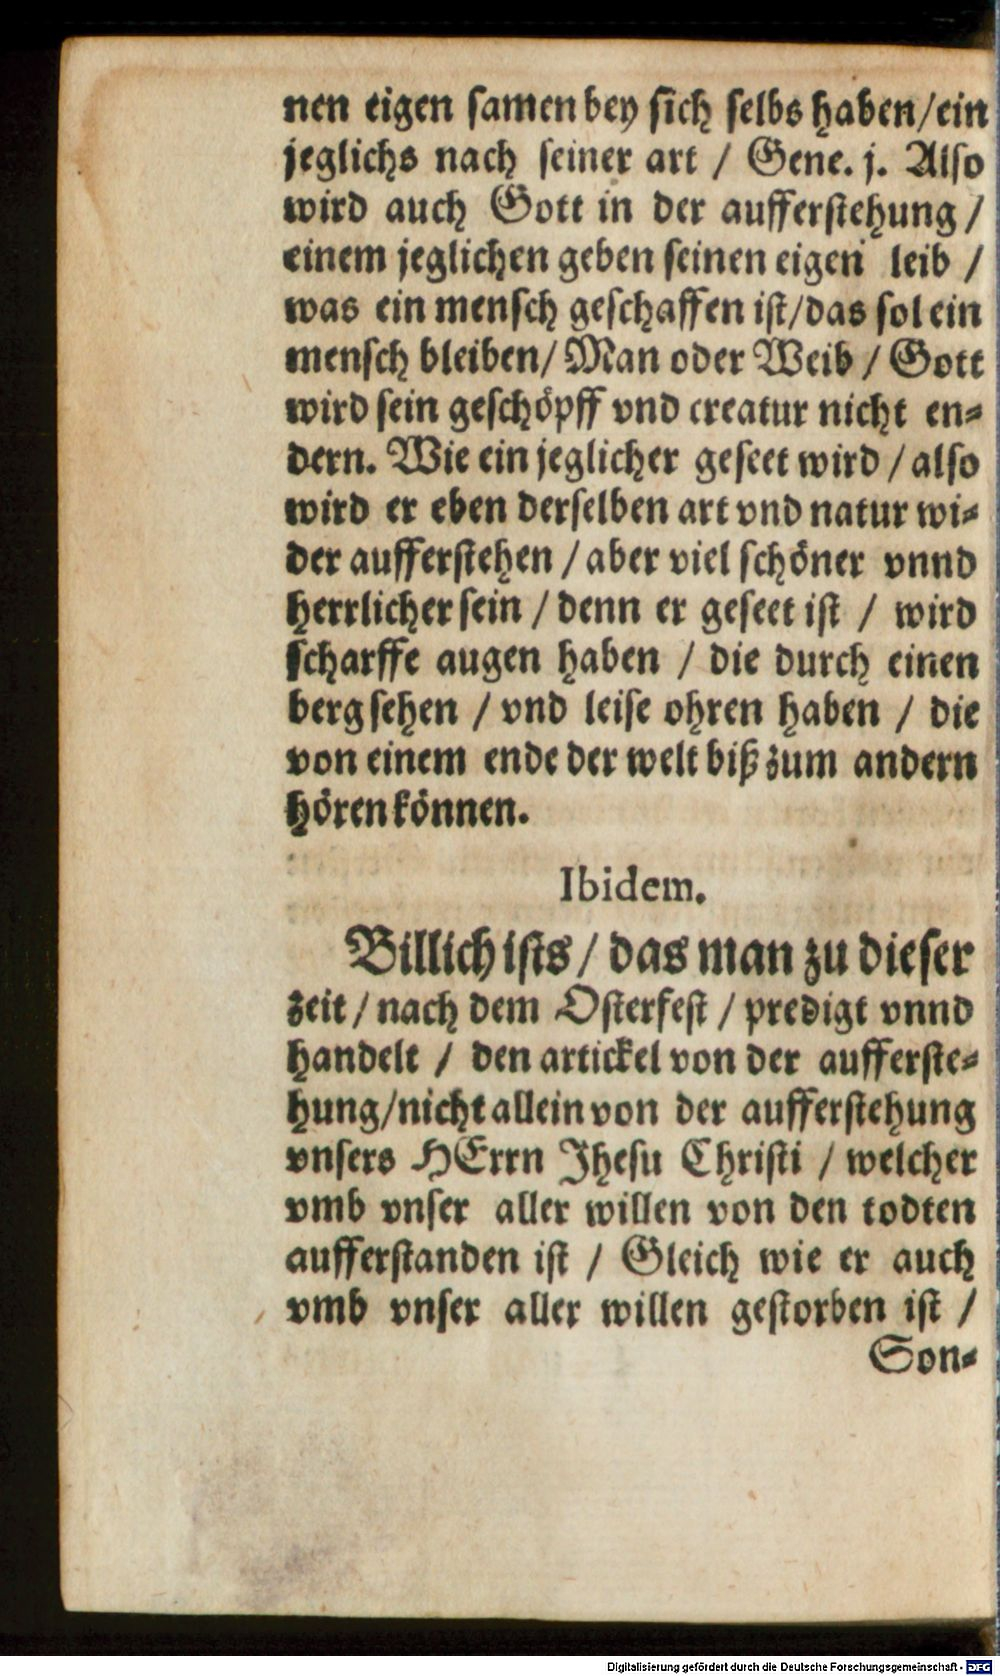 nen eigen samen bey sich selbs haben/ein
jeglichs nach seiner art / Gene. j. Also
wird auch Gott in der aufferstehung /
einem jeglichen geben seinen eigen leib /
was ein mensch geschaffen ist/das sol ein
mensch bleiben/ Man oder Weib / Gott
wird sein geschöpff vnd creatur nicht en-
dern. Wie ein jeglicher geseet wird / also
wird er eben derselben art vnd natur wi-
der aufferstehen / aber viel schöner vnnd
herrlicher sein / denn er geseet ist / wird
scharffe augen haben / die durch einen
berg sehen / vnd leise ohren haben / die
von einem ende der welt biß zum andern
hören können.
Ibidem.
Billich ists / das man zu dieser
zeit / nach dem Osterfest / predigt vnnd
handelt / den artickel von der aufferste-
hung/nicht allein von der aufferstehung
vnsers HErrn Jhesu Christi / welcher
vmb vnser aller willen von den todten
aufferstanden ist / Gleich wie er auch
vmb vnser aller willen gestorben ist /
Son-
Digitalisierung gefördert durch die Deutsche Forschungsgemeinschaft - DFG